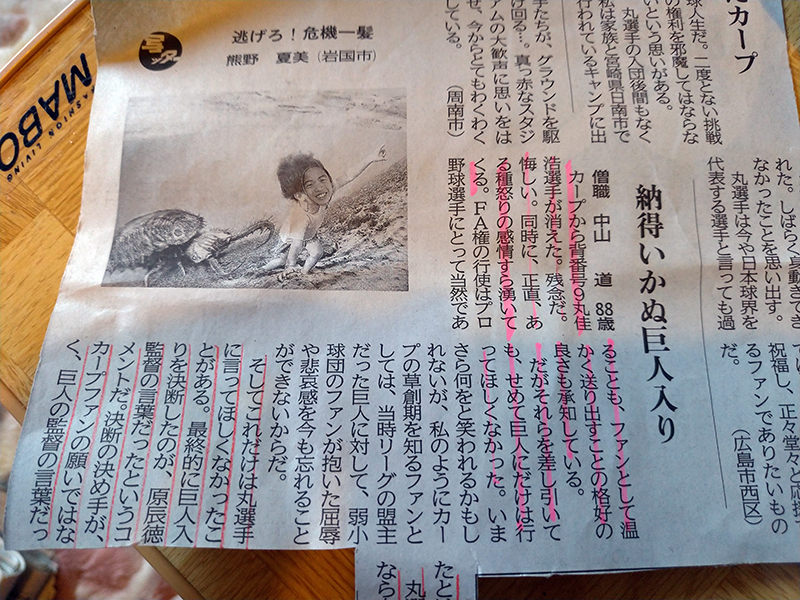 たカープ
球人生だ。二度とない挑戦
の権利を邪魔してはならな
いという思いがある。
丸選手の入団後間もなく
私は家族と宮崎県日南市で
行われているキャンプに出
れた。しばらく身動きでき
なかったことを思い出す。
丸選手は今や日本球界を
代表する選手と言っても過
祝福し、正々堂々と応援
るファンでありたいもの
だ。(広島市西区)
手たちが、グラウンドを駆
け回る…。真っ赤なスタジ
アムの大歓声に思いをは
せ、今からとてもわくわく
している。
(周南市)
納得いかぬ巨人入り
僧職 中山 道 88歳
カープから背番号9丸佳
浩選手が消えた。残念だ。
悔しい。同時に、正直、あ
る種怒りの感情すら湧いて
くる。FA権の行使はプロ
野球選手にとって当然であ
ることも、ファンとして温
かく送り出すことの格好の
良さも承知している。
だがそれらを差し引いて
も、せめて巨人にだけは行
ってほしくなかった。いま
さら何をと笑われるかもし
れないが、私のようにカー
プの草創期を知るファンと
しては、当時リーグの盟主
だった巨人に対して、弱小
球団のファンが抱いた屈辱
や悲哀感を今も忘れること
ができないからだ。
そしてこれだけは丸選手
に言ってほしくなかったこ
とがある。最終的に巨人入
りを決断したのが、原辰徳
監督の言葉だったというコ
メントだ。決断の決め手が、
カープファンの願いではな
く、巨人の監督の言葉だっ
たと
丸選
なら
逃げろ!危機一髪
熊野 夏美(岩国市)
MABO
FASHION LIVING